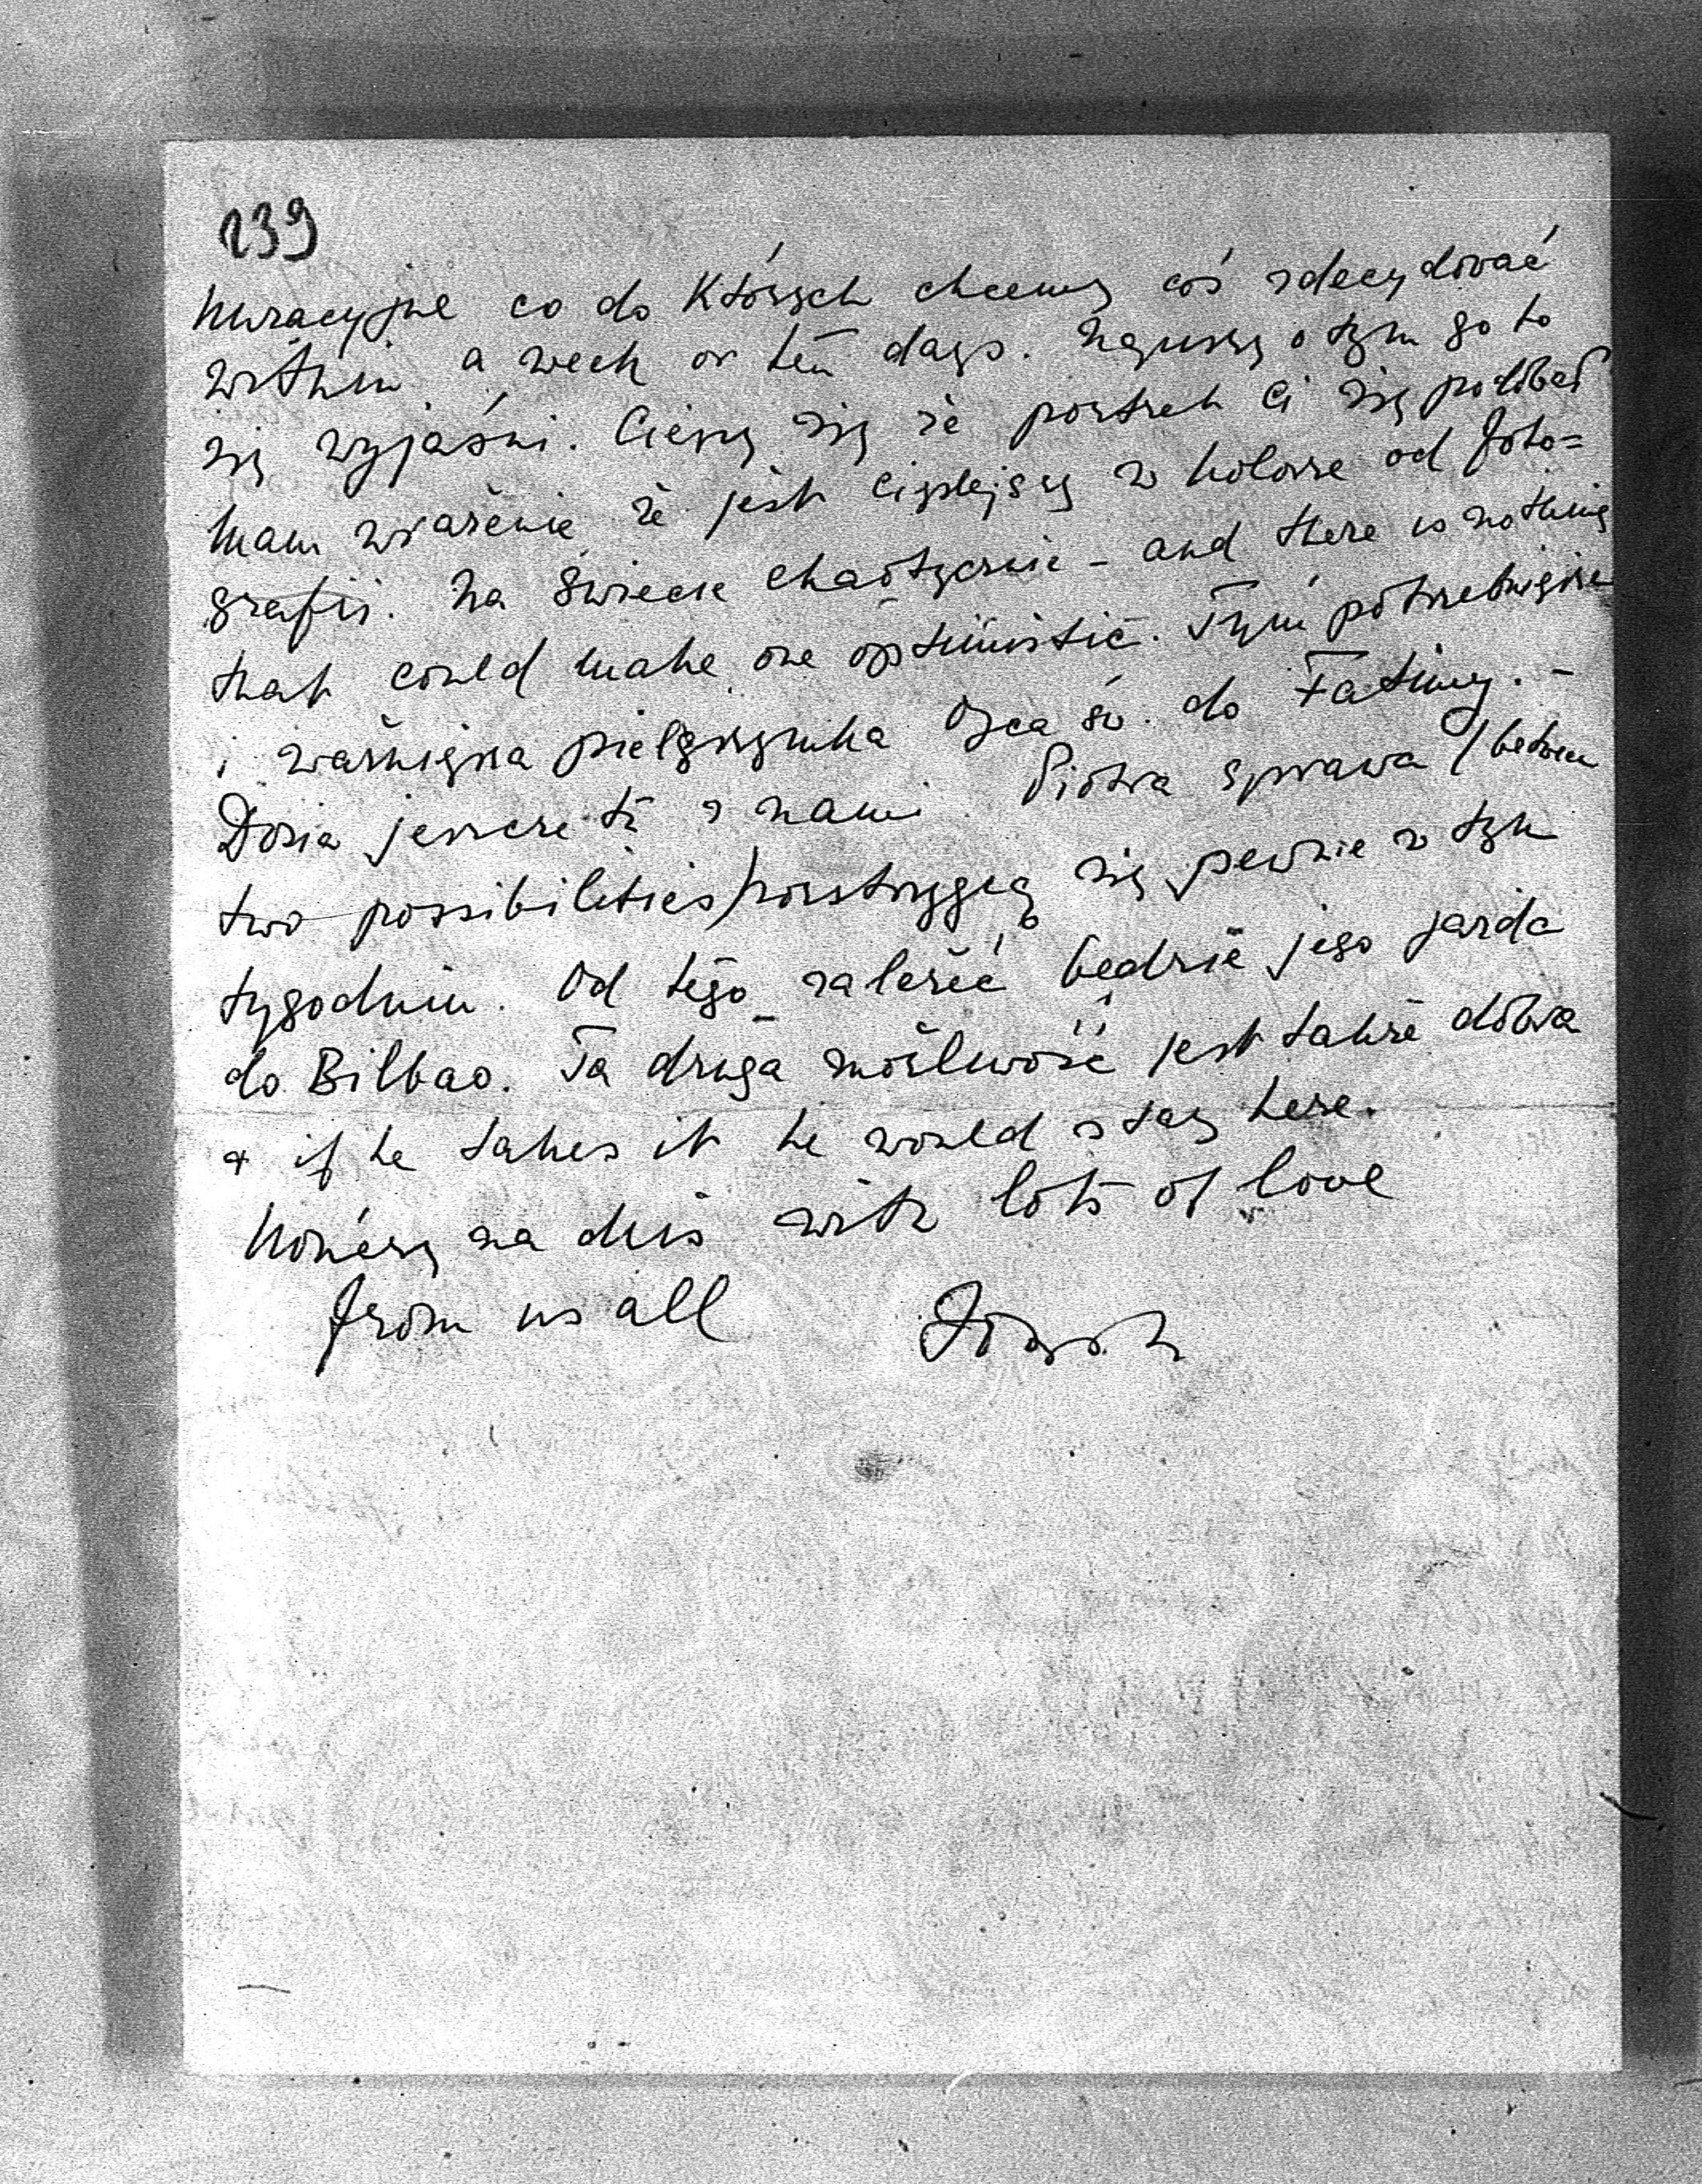 239
kuracyjne co do których chcemy coś zdecydować
within a week or ten days. Napiszę o tym go to
się wyjaśni. Cieszę się że portret Ci się podobał
mam wrażenie że jest cieplejszy w kolorze od foto=
grafii. Na świecie chaotycznie - and there is nothing
that could make one optimistic. Tym potrzebniejsza
i ważniejsza pielgrzymka Ojca św. do Fatimy. -
Dosia jeszcze tu z nami. Piotra sprawa /between
two possibilities) rozstrzygną się pewnie w tym
tygodniu. Od tego zależeć będzie jego jazda
do Bilbao. Ta druga możliwość jest także dobra
+ if he takes it he would stay here.
Kończę na dziś with lots of love
from us all